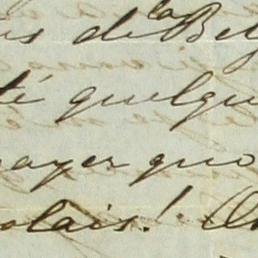 de la Bel
té quelqu
ayer que
olais! On